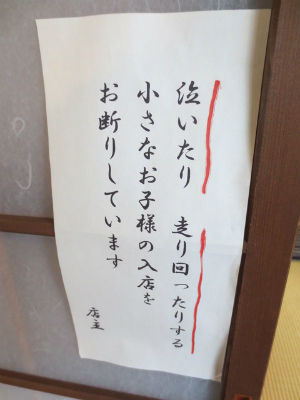 泣いたり 走り回ったりする
小さなお子様の入店を
お断りしています
店主